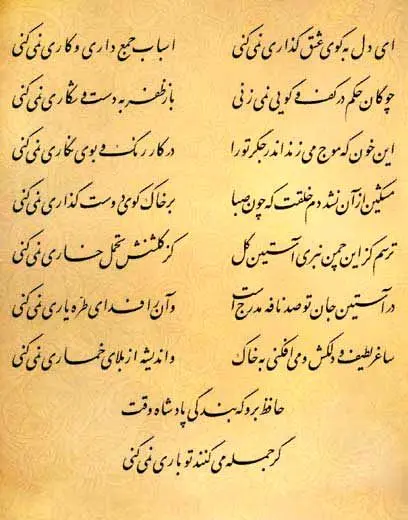 ای دل به کوی عشق گذاری نمی کنی اسباب جمع داری و کاری نمی کنی
چوگان حکم در کف و گویی نمی زنی باز ظفر به دست و شکاری نمی کنی
این خون که موج می زند اندر جگر تو را در کار رنگ و بوی نگاری نمی کنی
مشکین از آن نشد دم خلقت که چون صبا بر خاک کوی دوست گذاری نمی کنی
ترسم کز این چمن نبری آستین گل کز گلشنش تحمل خاری نمی کنی
در آستین جان تو صد نافه مدرج است وآن را فدای طره یاری نمی کنی
ساغر لطیف و دلکش و می افکنی به خاک واندیشه از بلای خماری نمی کنی
حافظ برو که بندگی پادشاه وقت
گر جمله می کنند تو باری نمی کنی